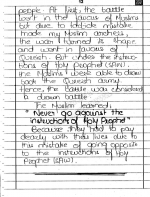 people. At first, the battle
went in the favour of Muslims
but due to the mistake
made by Muslim archers
the war turned its shape
and went in favour of
Quraish. But under the instruc-
tions of Holy Prophet (SAW)
the Muslims were able to draw
back the Quraish army.
Hence, the battle was considered
a drawn battle.
The Muslim learned,
"Never go against the
instructions of Holy Prophet"
Because they had to pay
deadly with their lives due to
this mistake of going opposite
to the instructions of Holy
Prophet (SAW).